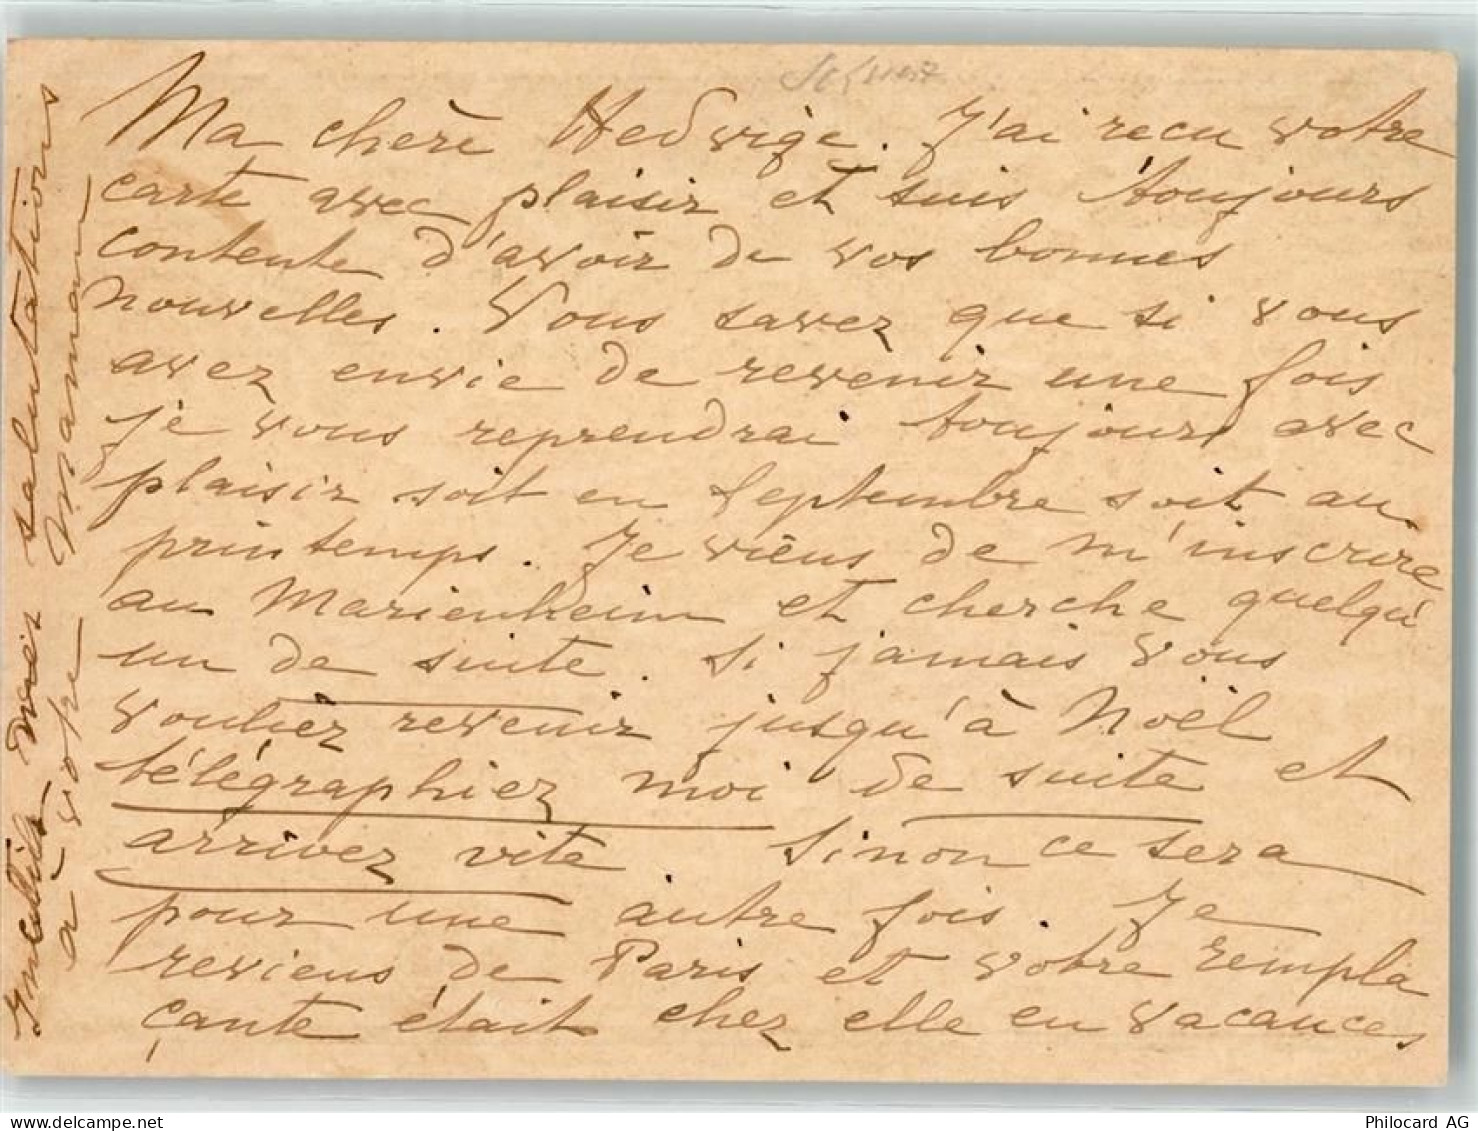 Ma chère Hedwige. J'ai recu votre
carte avec plaisir et suis toujours
contente d'avoir de vos bonnes
nouvelles. Vous savez que si vous
avez envie de revenir une fois
je vous reprendrai toujours avec
plaisir soit en Septembre soit au
printemps. Je viens de m'inscrire
au Marienheim et cherche quelqu'
un de suite. Si jamais vous
vouliez revenir jusqu'à Noël
télégraphiez moi de suite et
arrivez vite. Sinon ce sera
pour une autre fois. Je
reviens de Paris et votre rempla
çante était chez elle en vacances
salutations
à votre Maman
delcampe.net
Philocard AG